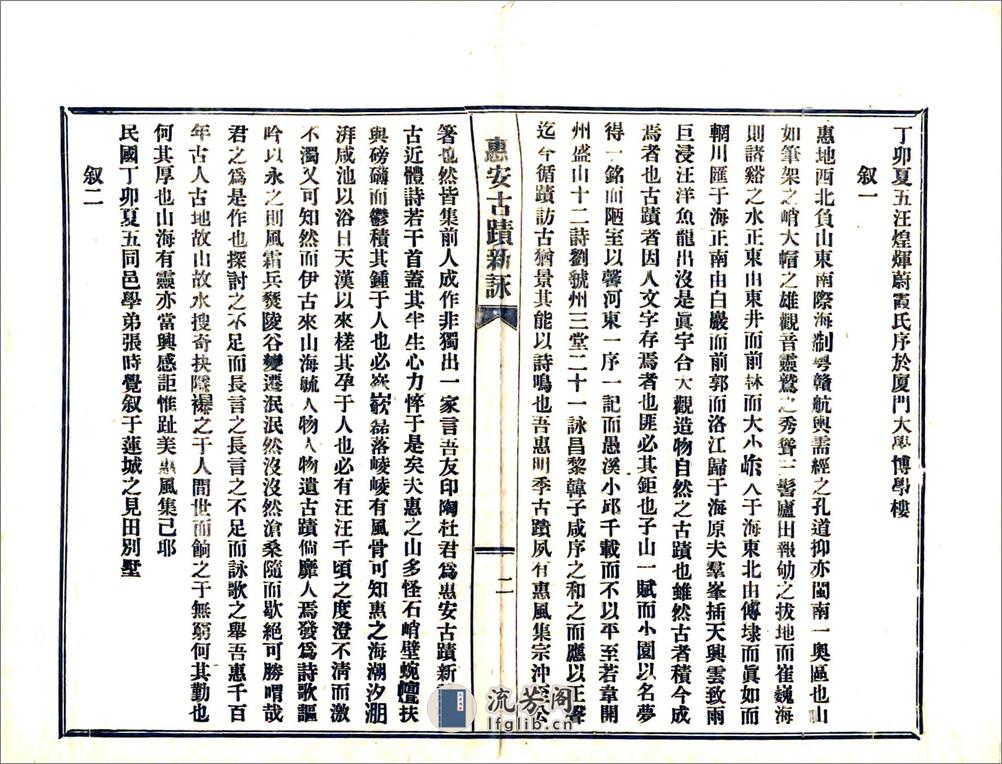 丁卯夏五汪煌煇蔚霞氏序於厦門大學博學樓
叙一
惠地西北負山東南際海制粤贛航輿需經之孔道抑亦閩南一奥區也山
如筆架之峭大帽之雄觀音靈鷲之秀聳三髻廬田報劬之拔地而崔巍海
則諸谿之水正東由東井而前林而大小岞入于海東北由傅埭而眞如而
輞川匯于海正南由白嚴而前郭而洛江歸于海原夫羣峯插天興雲致雨
巨浸汪洋魚龍出沒是眞宇台大觀造物自然之古蹟也雖然古者積今成
焉者也古蹟者因人文字存焉者也匪必其鉅也子山一賦而小園以名夢
得一銘而陋室以馨河東一序一記而愚溪小邱千載而不以平至若韋開
州盛山十二詩劉虢州三堂二十一詠昌黎韓子咸序之和之而應以正聲
迄今循蹟訪古猶景其能以詩鳴也吾惠明季古蹟夙有惠風集宗沖
惠安古蹟新詠
二
箸也然皆集前人成作非獨出一家言吾友印陶杜君爲惠安古蹟新
古近體詩若干首蓋其半生心力悴于是矣夫惠之山多怪石峭壁蜿蟺扶
與磅礴而鬱積其鍾于人也必嶔嶔磊落崚崚有風骨可知惠之海潮汐淜
湃咸池以浴日天漢以來槎其孕于人也必有汪汪千頃之度澄不清而激
不濁又可知然而伊古來山海毓人物人物遺古蹟倘靡人焉發爲詩歌謳
吟以永之則風霜兵燹陵谷變遷泯泯然沒沒然滄桑隨而歇絕可勝喟哉
君之爲是作也探討之不足而長言之長言之不足而詠歌之舉吾惠千百
年古人古地故山故水搜奇抉隱襮之于人間世而餉之于無窮何其勤也
何其厚也山海有靈亦當興感詎惟趾美惠風集已耶
民國丁卯夏五同邑學弟張時覺叙于蓮城之見田別墅
叙二
流芳阁
lfglib.cn